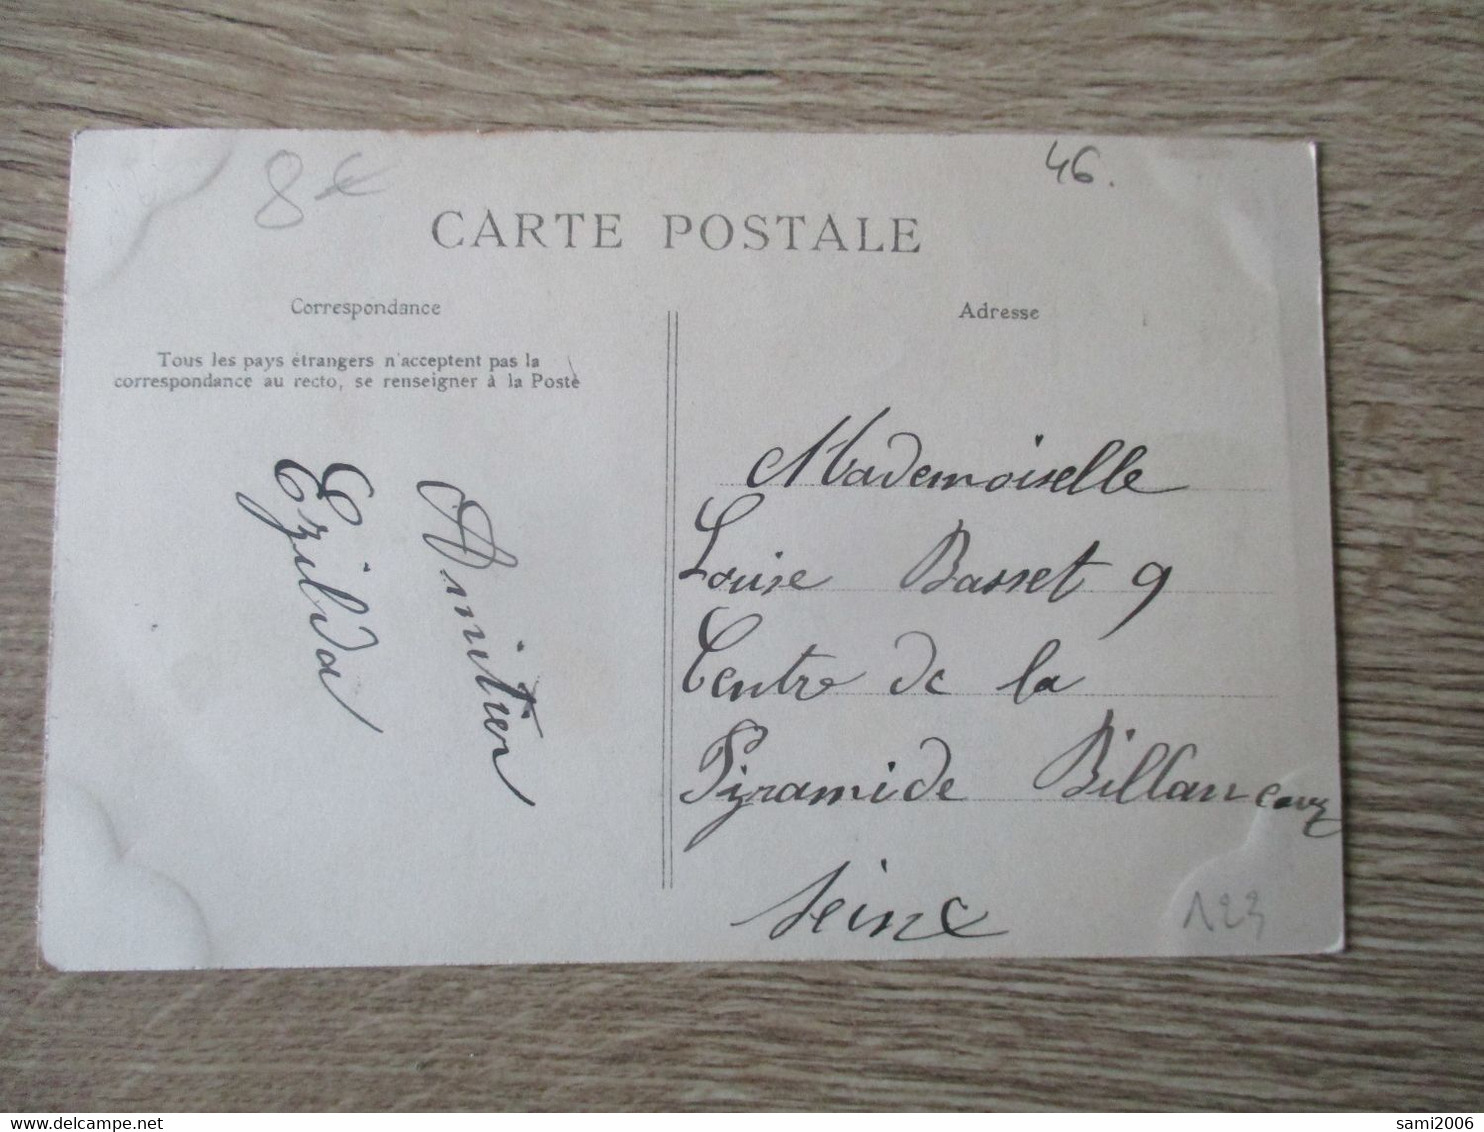 8€
46.
CARTE POSTALE
Correspondance
Tous les pays étrangers n'acceptent pas la
correspondance au recto, se renseigner à la Poste
Amitier
Ezilda
Adresse
Mademoiselle
Louise Basset 9
Centre de la
Pyramide Billancour
Seine
123
sami2006